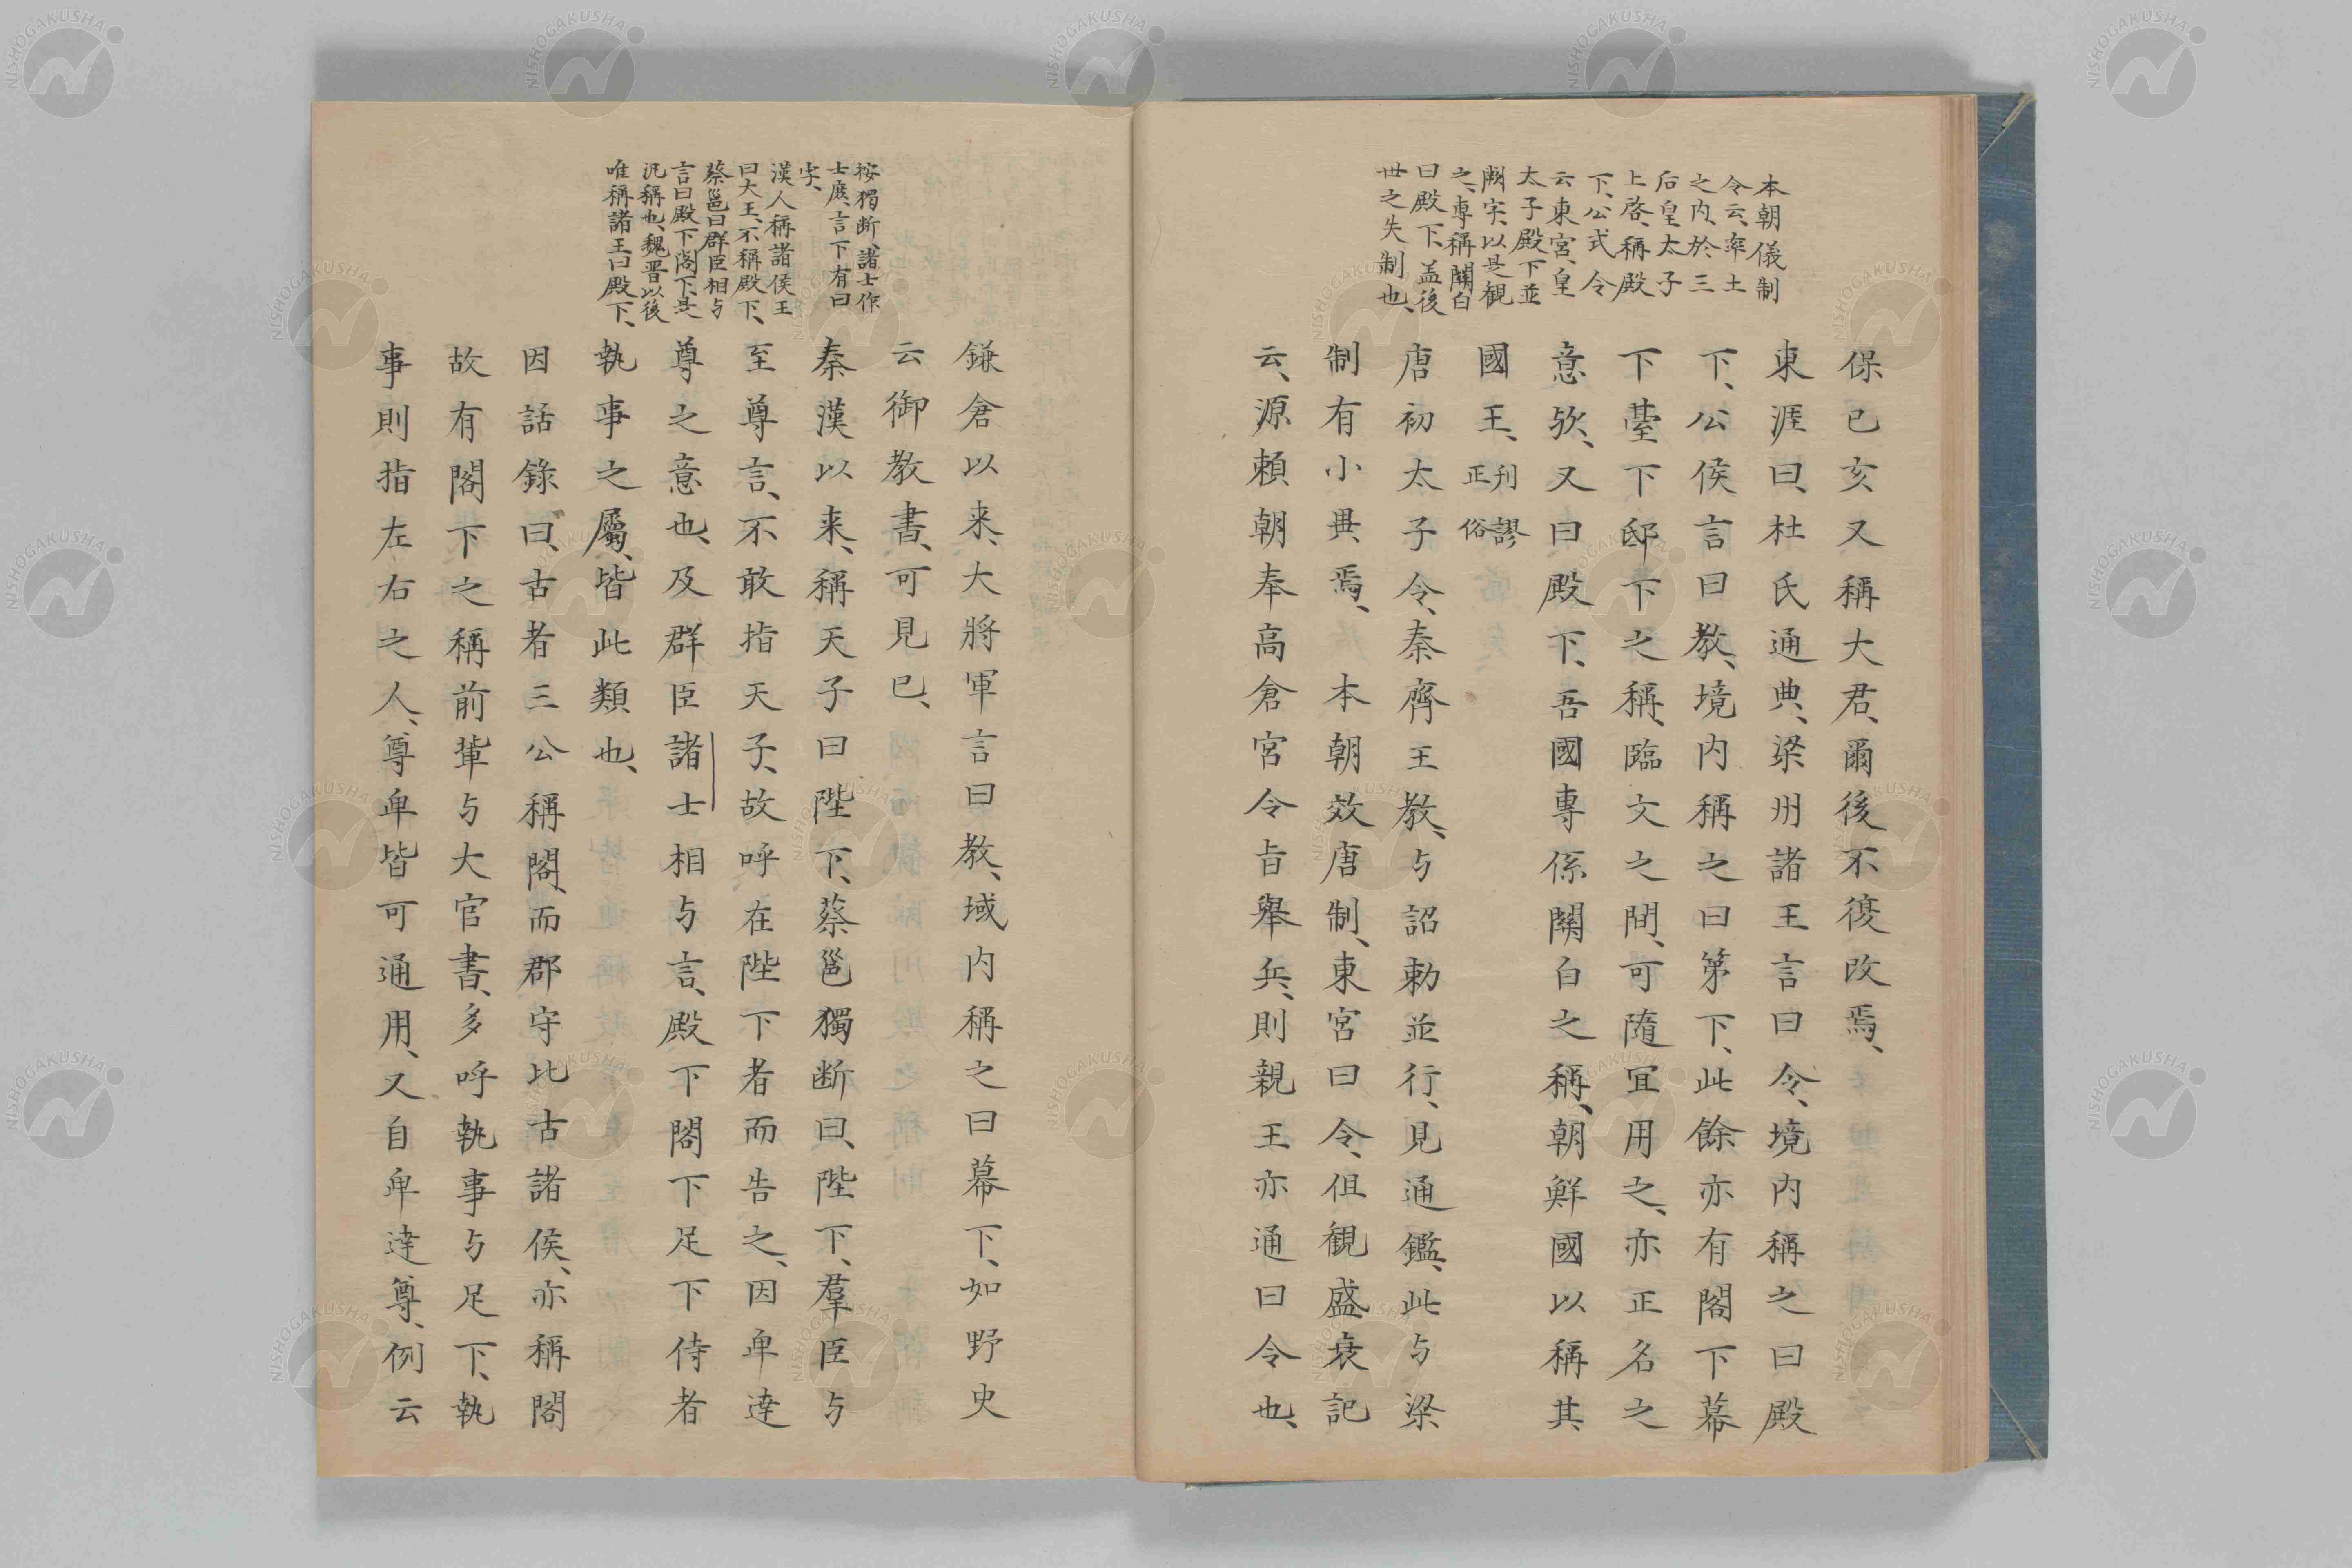 本朝儀制
令云、率土
之内、於三
后皇太子
上啓、稱殿
下、公式令
云東宮、皇
太子殿下並
闕字、以是観
之、専稱關白
曰殿下、盖後
世之失制也、
保己亥又稱大君、爾後不復改焉、
東涯曰、杜氏通典、梁州諸王言曰令、境内稱之曰殿
下、公侯言曰教、境内稱之曰第下、此餘亦有閤下幕
下臺下邸下之稱、臨文之間、可隨宜用之、亦正名之
意欤、又曰殿下、吾國専係關白之稱、朝鮮國以稱其
國王、刊謬正俗
唐初太子令、秦齊王教、与詔勅並行、見通鑑、此与梁
制有小異焉、本朝效唐制、東宮曰令、但観盛衰記
云、源頼朝奉高倉宮令旨舉兵、則親王亦通曰令也、
按獨断、諸士作
士庶、言下有曰
字、
漢人稱諸侯王
曰大王、不稱殿下、
蔡邕曰群臣相与
言曰殿下閤下、是
汎稱也、魏晋以後
唯稱諸王曰殿下、
鎌倉以来、大將軍言曰教、域内稱之曰幕下、如野史
云御教書、可見已、
秦漢以来、稱天子曰陛下、蔡邕獨断曰、陛下、羣臣与
至尊言、不敢指天子、故呼在陛下者而告之、因卑達
尊之意也、及群臣諸士相与言、殿下閤下足下侍者
執事之屬、皆此類也、
因話錄曰、古者三公稱閤、而郡守比古諸侯、亦稱閤
故有閤下之稱前輩与大官書、多呼執事与足下、執
事則指左右之人、尊卑皆可通用、又自卑達尊、例云